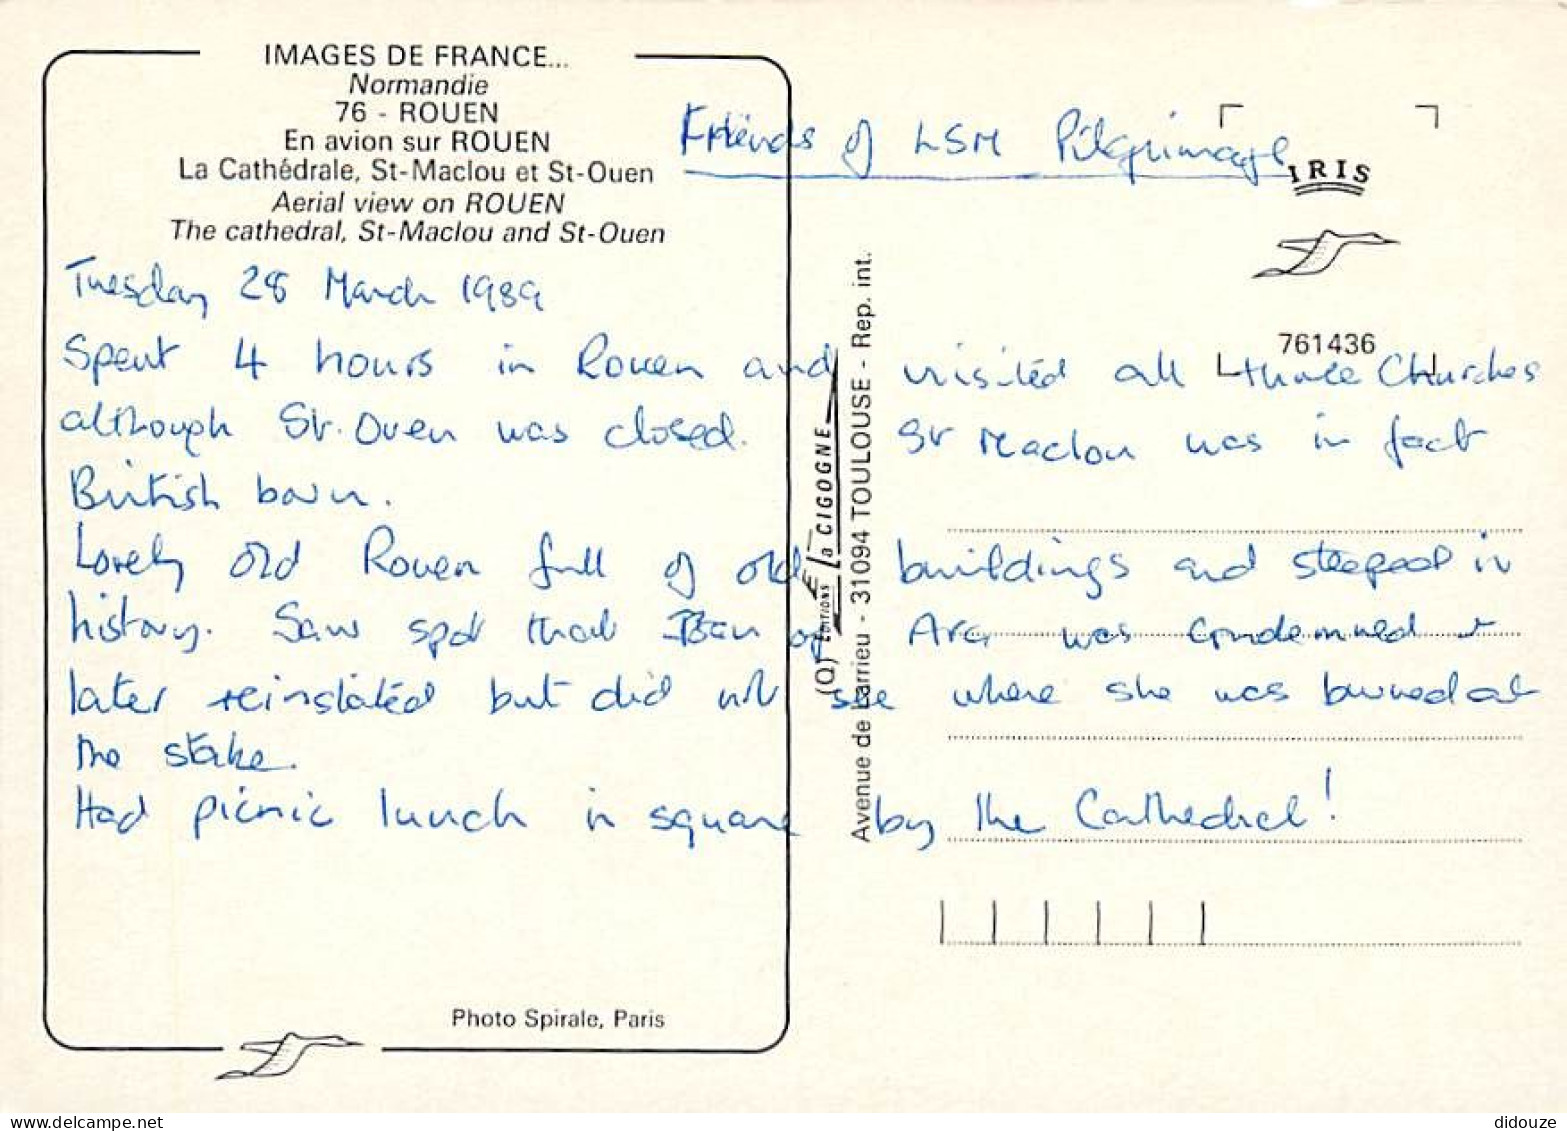 IMAGES DE FRANCE...
Normandie
76 - ROUEN
En avion sur ROUEN
La Cathédrale, St-Maclou et St-Ouen
Aerial view on ROUEN
The cathedral, St-Maclou and St-Ouen
Friends of LSM Pilgrimage
IRIS
761436
Tuesday 28 March 1989
Spent 4 hours in Rouen and visited all three Churches
although St. Ouen was closed. St Maclou was in fact
British born.
Lovely old Rouen full of old buildings and steeped in
history. Saw spot that Joan of Arc was condemned &
later reinstated but did not see where she was burned at
the stake.
Had picnic lunch in square by the Cathedral!
(Q) ÉDITIONS la CIGOGNE
Avenue de Larrieu - 31094 TOULOUSE - Rep. int.
Photo Spirale, Paris
didouze